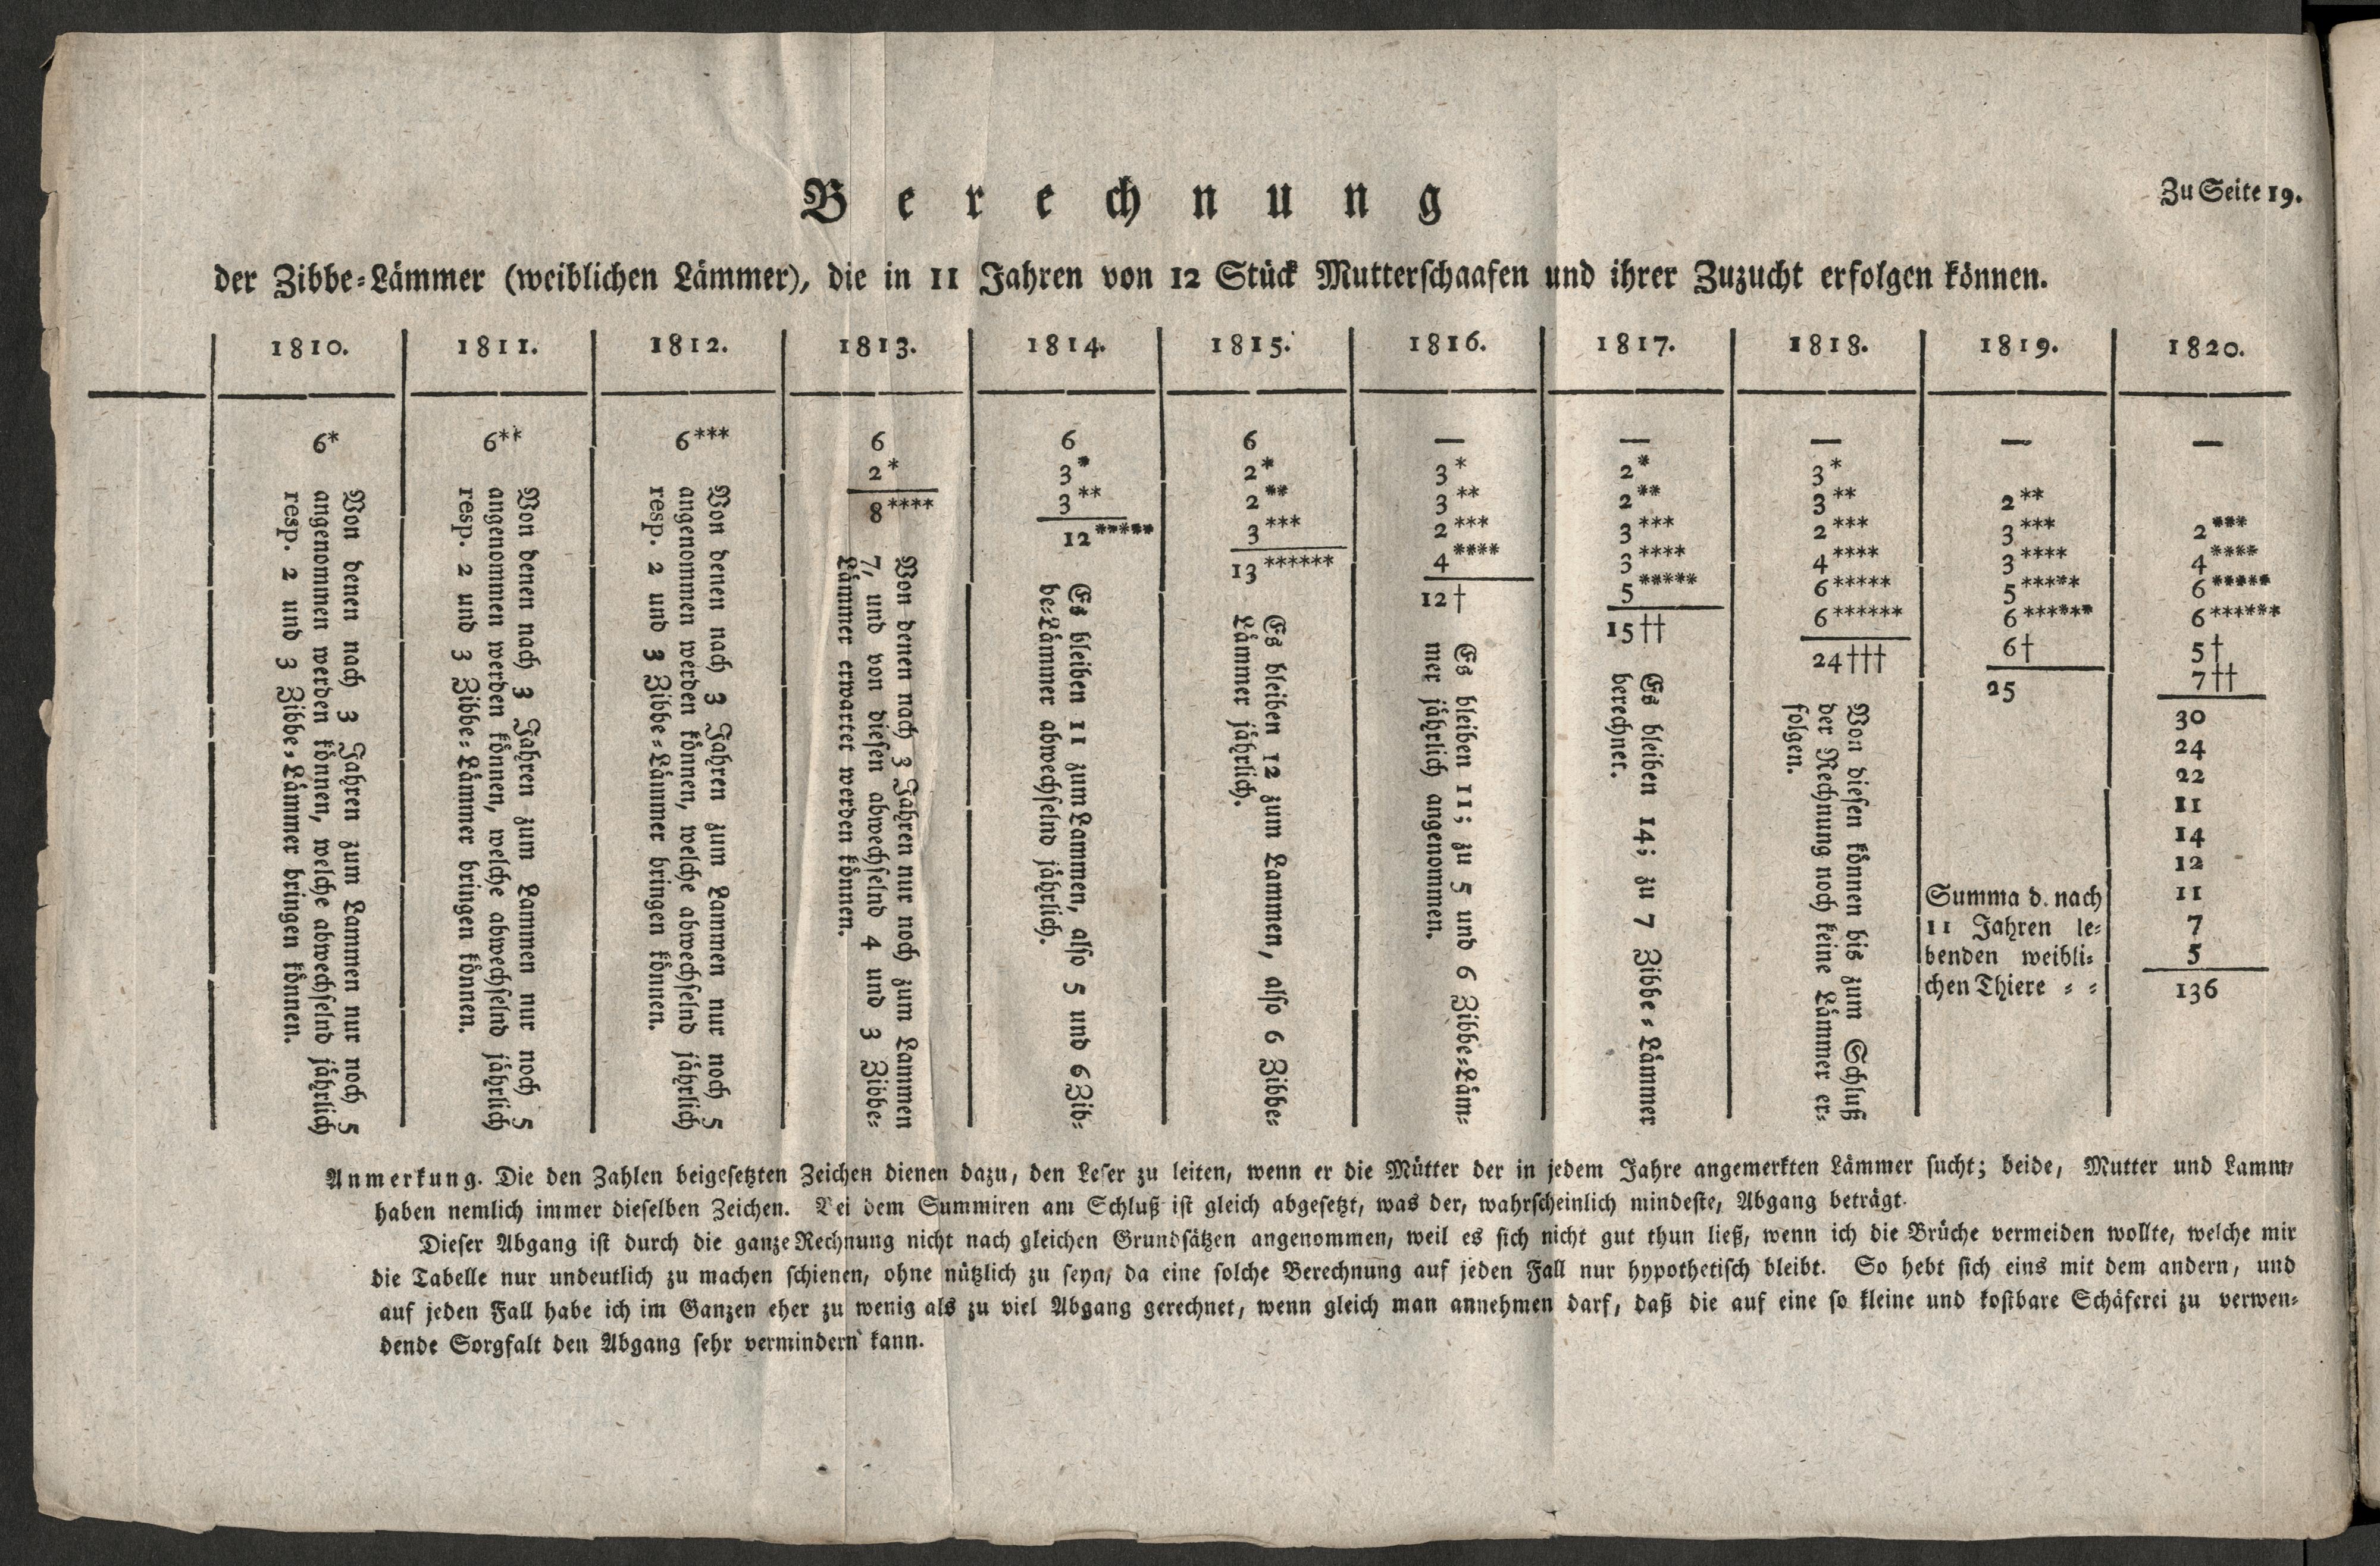 Zu Seite 19.
Berechnung
der Zibbe-Lämmer (weiblichen Lämmer), die in 11 Jahren von 12 Stück Mutterschaafen und ihrer Zuzucht erfolgen können.
1810.
6*
Von denen nach 3 Jahren zum Lammen nur noch 5
angenommen werden können, welche abwechselnd jährlich
resp. 2 und 3 Zibbe-Lämmer bringen können.
1811.
6**
Von denen nach 3 Jahren zum Lammen nur noch 5
angenommen werden können, welche abwechselnd jährlich
resp. 2 und 3 Zibbe-Lämmer bringen können.
1812.
6***
Von denen nach 3 Jahren zum Lammen nur noch 5
angenommen werden können, welche abwechselnd jährlich
resp. 2 und 3 Zibbe-Lämmer bringen können.
1813.
6
2*
8****
Von denen nach 3 Jahren nur noch zum Lammen
7, und von diesen abwechselnd 4 und 3 Zibbe-
Lämmer erwartet werden können.
1814.
6
3*
3**
12*****
Es bleiben 11 zum Lammen, also 5 und 6 Zib-
be-Lämmer abwechselnd jährlich.
1815.
6
2*
2**
3***
13******
Es bleiben 12 zum Lammen, also 6 Zibbe-
Lämmer jährlich.
1816.
—
3*
3**
2***
4****
12†
Es bleiben 11; zu 5 und 6 Zibbe-Läm-
mer jährlich angenommen.
1817.
—
2*
2**
3***
3****
5*****
15††
Es bleiben 14; zu 7 Zibbe-Lämmer
berechnet.
1818.
—
3*
3**
2***
4****
6*****
6******
24†††
Von diesen können bis zum Schluß
der Rechnung noch keine Lämmer er-
folgen.
1819.
—
2**
3***
3****
5*****
6******
6†
25
Summa d. nach
11 Jahren le-
benden weibli-
chen Thiere - -
1820.
—
2***
4****
6*****
6******
5†
7††
30
24
22
11
14
12
11
7
5
136
Anmerkung. Die den Zahlen beigesetzten Zeichen dienen dazu, den Leser zu leiten, wenn er die Mütter der in jedem Jahre angemerkten Lämmer sucht; beide, Mutter und Lamm,
haben nemlich immer dieselben Zeichen. Bei dem Summiren am Schluß ist gleich abgesetzt, was der, wahrscheinlich mindeste, Abgang beträgt.
Dieser Abgang ist durch die ganze Rechnung nicht nach gleichen Grundsätzen angenommen, weil es sich nicht gut thun ließ, wenn ich die Brüche vermeiden wollte, welche mir
die Tabelle nur undeutlich zu machen schienen, ohne nützlich zu seyn, da eine solche Berechnung auf jeden Fall nur hypothetisch bleibt. So hebt sich eins mit dem andern, und
auf jeden Fall habe ich im Ganzen eher zu wenig als zu viel Abgang gerechnet, wenn gleich man annehmen darf, daß die auf eine so kleine und kostbare Schäferei zu verwen-
dende Sorgfalt den Abgang sehr vermindern kann.